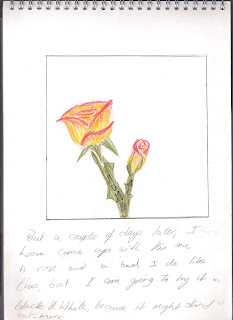 But a couple of days later, I
have come up with this one,
A rose and a bud I do like
this, but I am going to try it in
black & White, because it might stand
out more